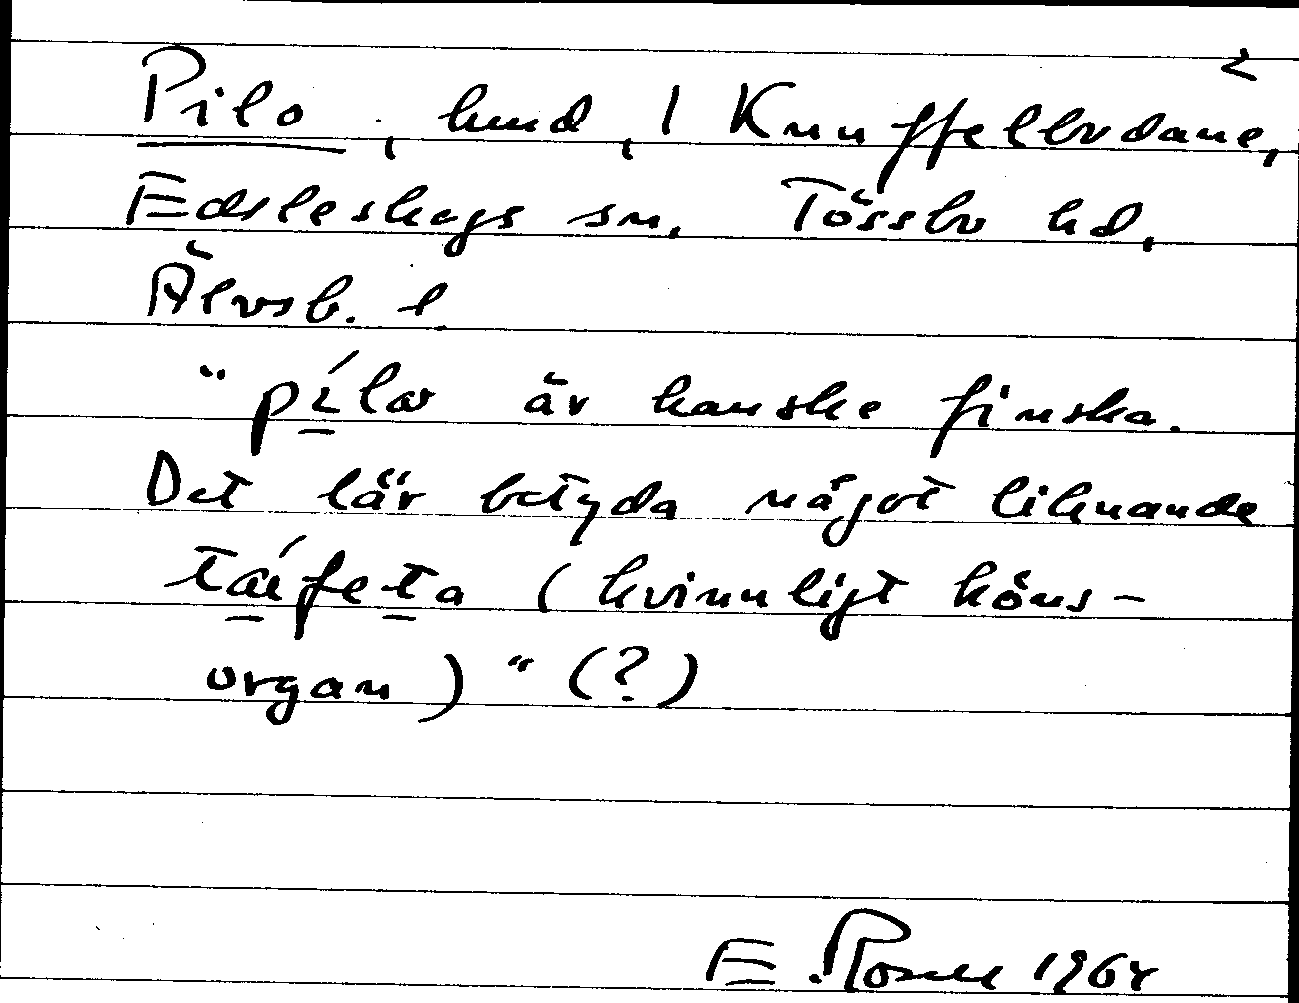 2
Pilo, hund, 1 Knuffelbodane,
Edsleskogs sn. Tössbo hd.
Älvsb. l.
"pílo är kanske finska.
Det lär betyda något liknande
táifeta (kvinnligt köns-
organ)" (?)
E. Rosell 1964